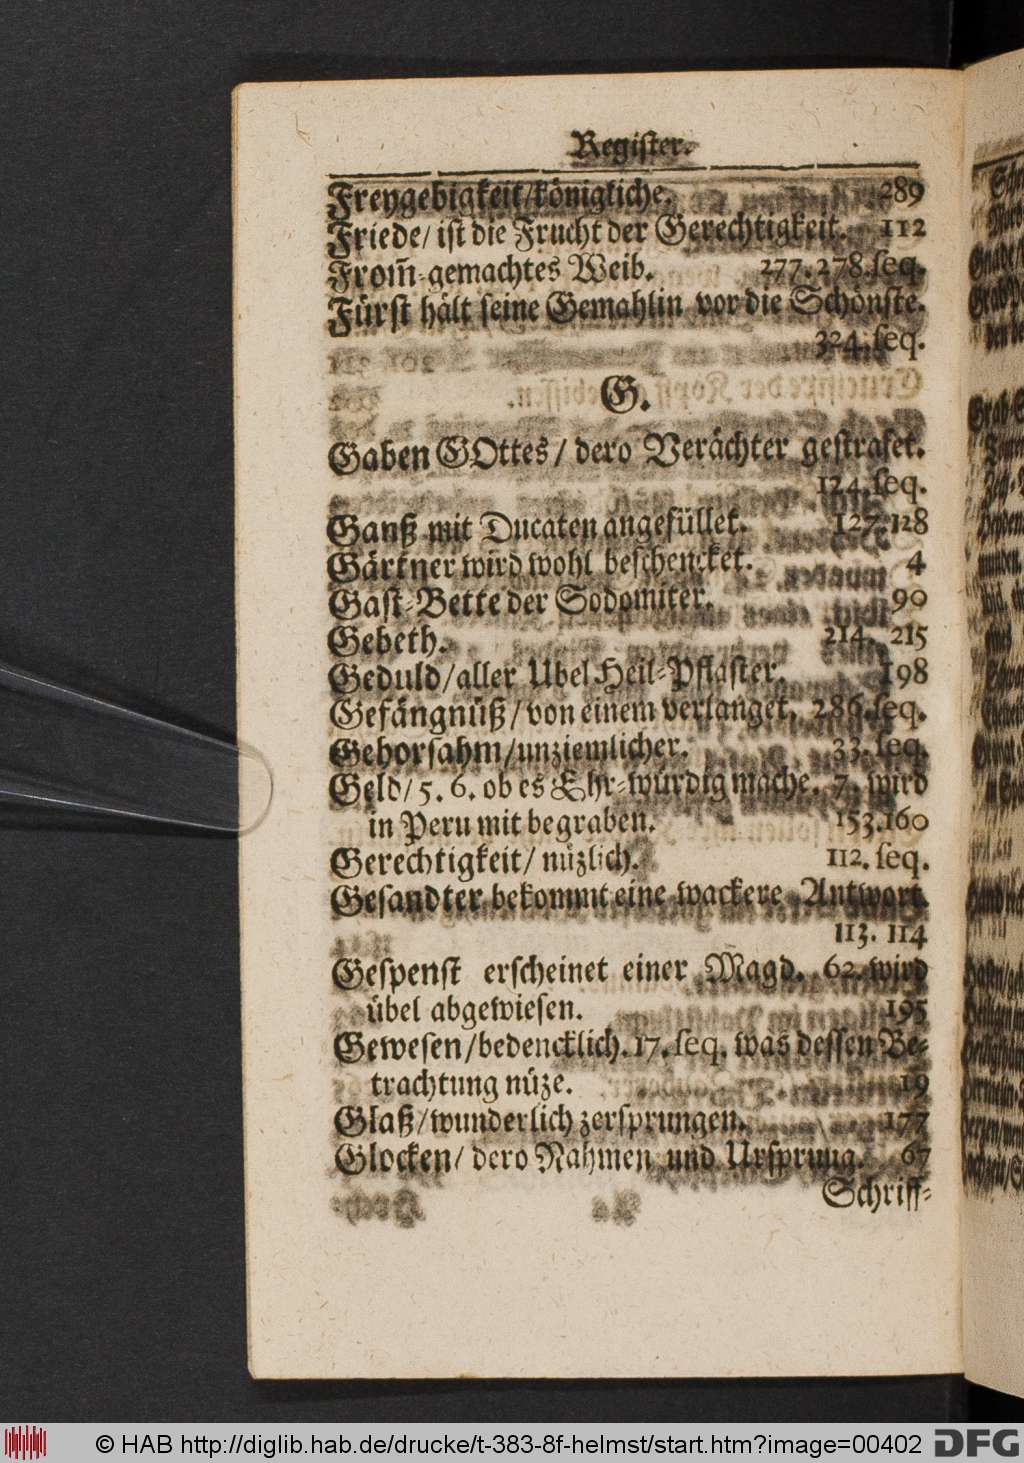 Register.
Freygebigkeit/königliche. 289
Friede/ ist die Frucht der Gerechtigkeit. 112
From̃-gemachtes Weib. 277.278.seq.
Fürst hält seine Gemahlin vor die Schönste.
324.seq.
G.
Gaben GOttes/ dero Verächter gestrafet.
124.seq.
Ganß mit Ducaten angefüllet. 127.128
Gärtner wird wohl beschencket. 4
Gast-Bette der Sodomiter. 90
Gebeth. 214. 215
Geduld/aller Ubel Heil-Pflaster. 198
Gefängnüß/von einem verlanget. 286.seq.
Gehorsahm/unziemlicher. 33.seq.
Geld/ 5. 6. ob es Ehr-würdig mache. 7. wird
in Peru mit begraben. 153.160
Gerechtigkeit/ nüzlich. 112. seq.
Gesandter bekommt eine wackere Antwort.
113. 114
Gespenst erscheinet einer Magd. 62. wird
übel abgewiesen. 195
Gewesen/bedencklich. 17. seq. was dessen Be-
trachtung nüze. 19
Glaß/wunderlich zersprungen. 177
Glocken/ dero Nahmen und Ursprung. 67
Schriff-
© HAB http://diglib.hab.de/drucke/t-383-8f-helmst/start.htm?image=00402
DFG